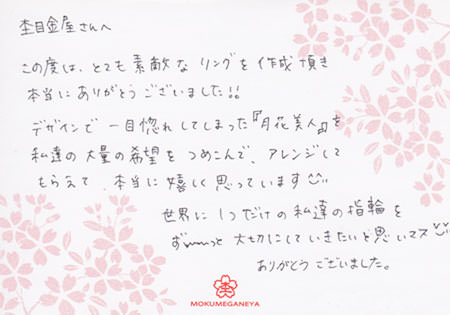 杢目金屋さんへ
この度は、とても素敵なリングを作成頂き
本当にありがとうございました!!
デザインで一目惚れしてしまった『月花美人』を
私達の大量の希望をつめこんで、アレンジして
もらえて、本当に嬉しく思っています
世界に1つだけの私達の指輪を
ず〜〜っと大切にしていきたいと思いマス
ありがとうございました。
杢
MOKUMEGANEYA